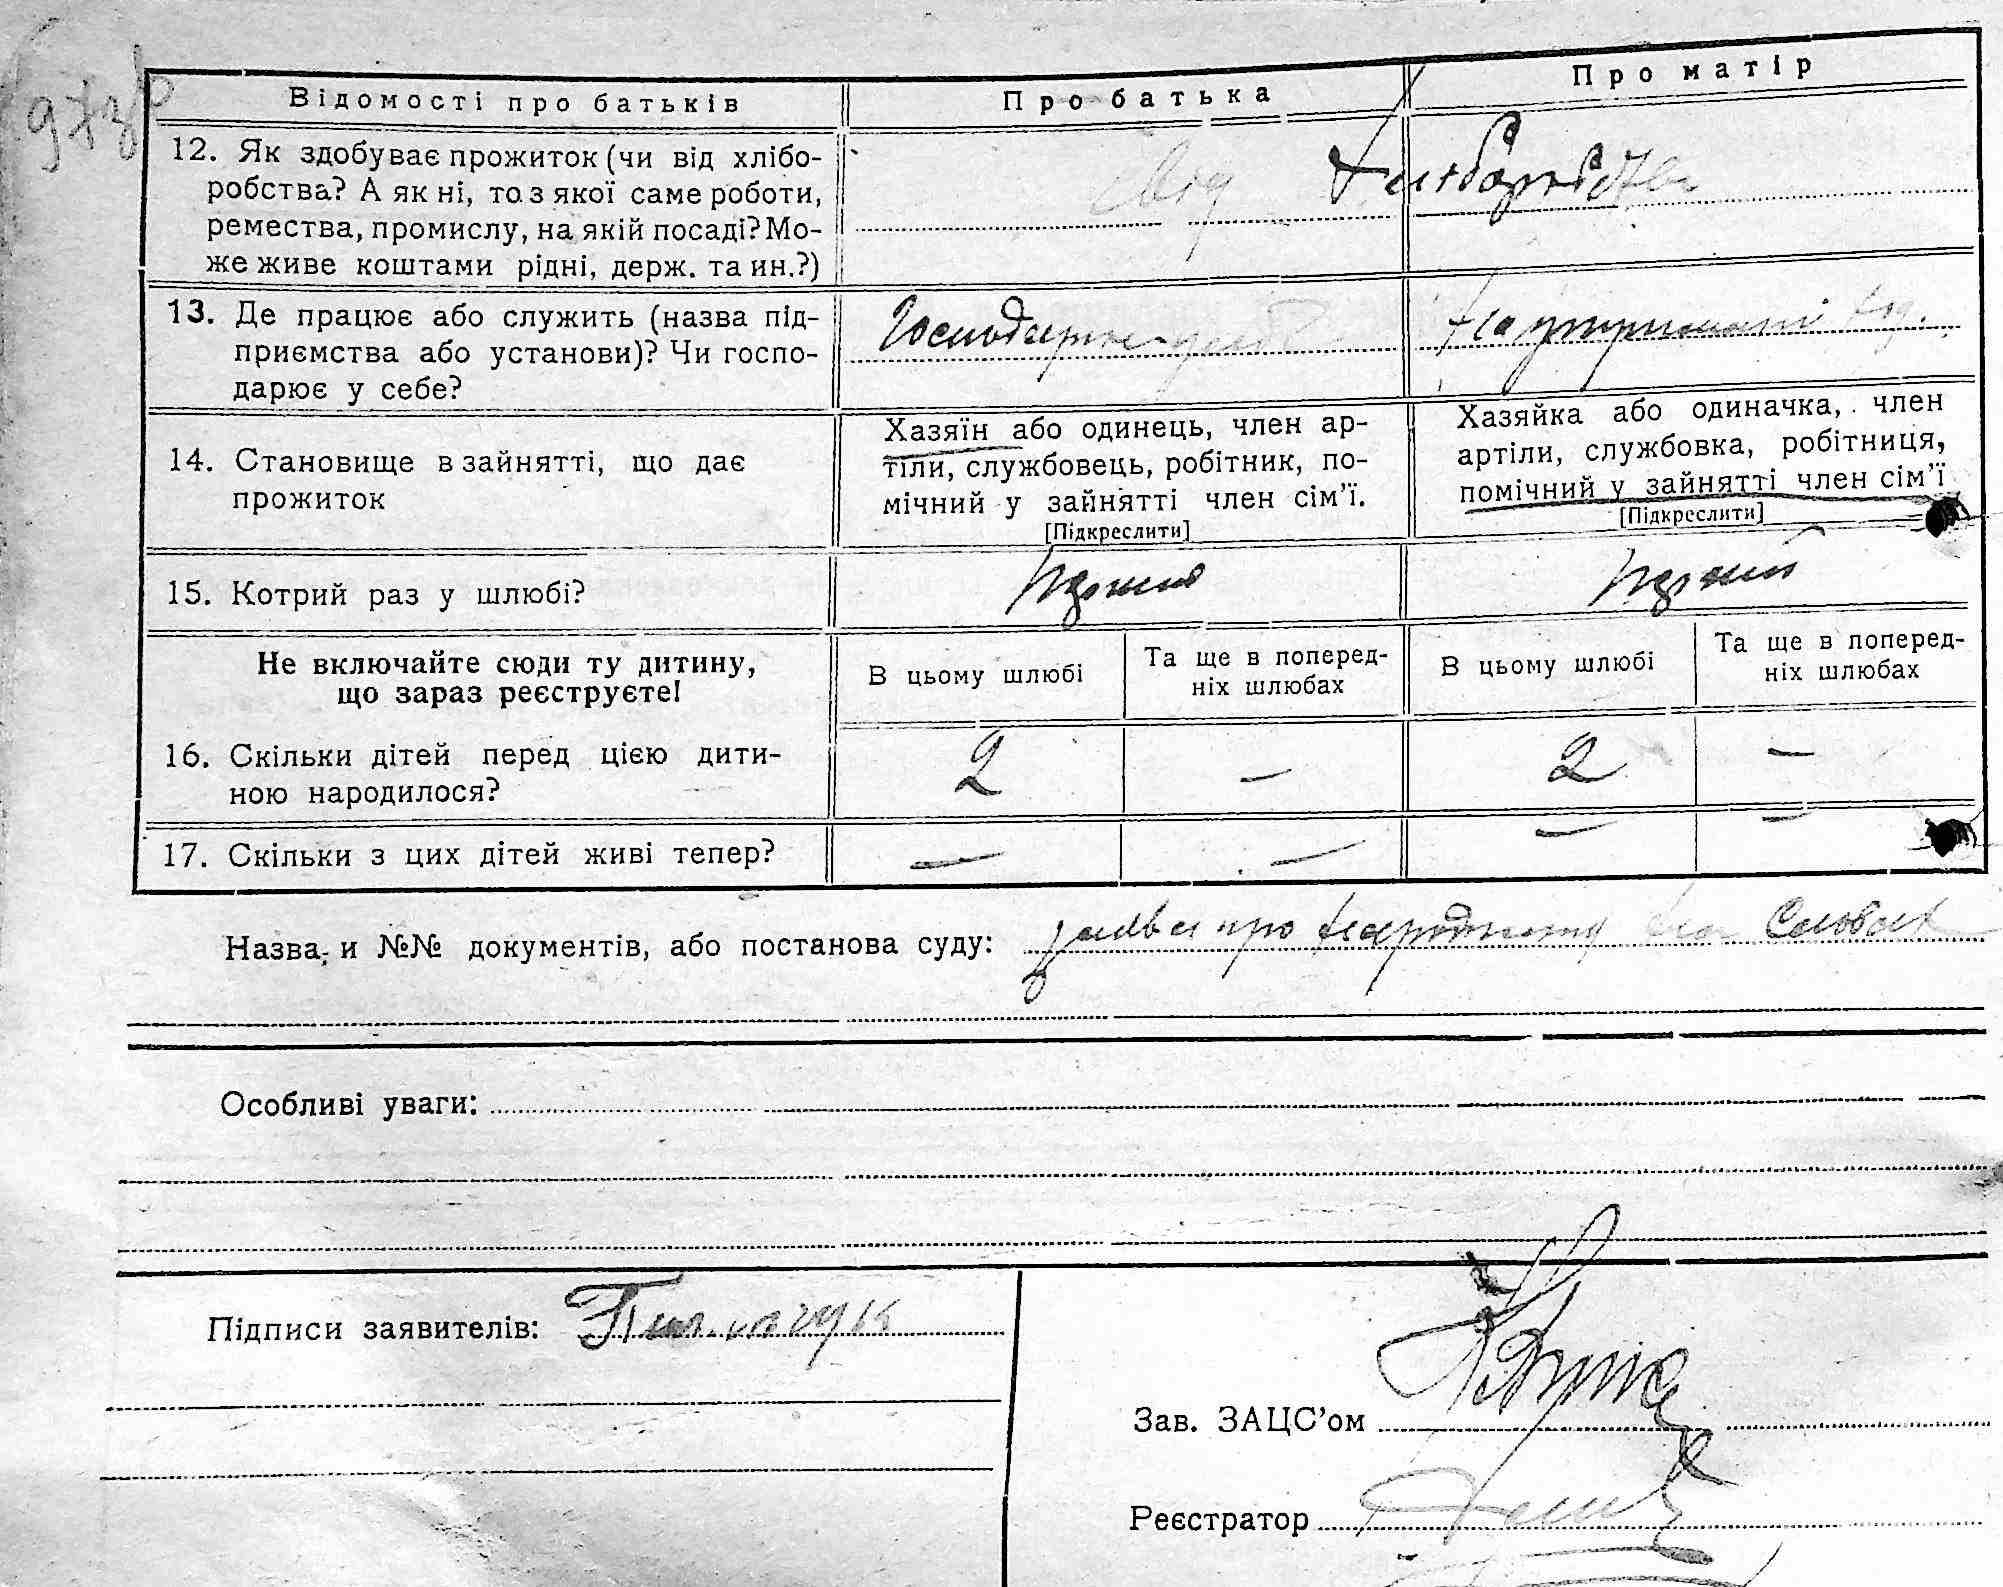 Відомості про батьків
Про батька
Про матір
12. Як здобуває прожиток (чи від хлібо-
робства? А як ні, то з якої саме роботи,
ремества, промислу, на якій посаді? Мо-
же живе коштами рідні, держ. та ин.?)
Від Хліборобства
13. Де працює або служить (назва під-
приємства або установи)? Чи госпо-
дарює у себе?
На утриманні
14. Становище в зайнятті, що дає
прожиток
Хазяїн або одинець, член ар-
тіли, службовець, робітник, по-
мічний у зайнятті член сім’ї.
[Підкреслити]
Хазяйка або одиначка, член
артіли, службовка, робітниця,
помічний у зайнятті член сім’ї
[Підкреслити]
15. Котрий раз у шлюбі?
Не включайте сюди ту дитину,
що зараз реєструєте!
В цьому шлюбі
Та ще в поперед-
ніх шлюбах
В цьому шлюбі
Та ще в поперед-
ніх шлюбах
16. Скільки дітей перед цією дити-
ною народилося?
2 — 2 —
17. Скільки з цих дітей живі тепер?
— — — —
Назва и №№ документів, або постанова суду: заява про народження на Словах
Особливі уваги:
Підписи заявителів:
Зав. ЗАЦС’ом
Реєстратор